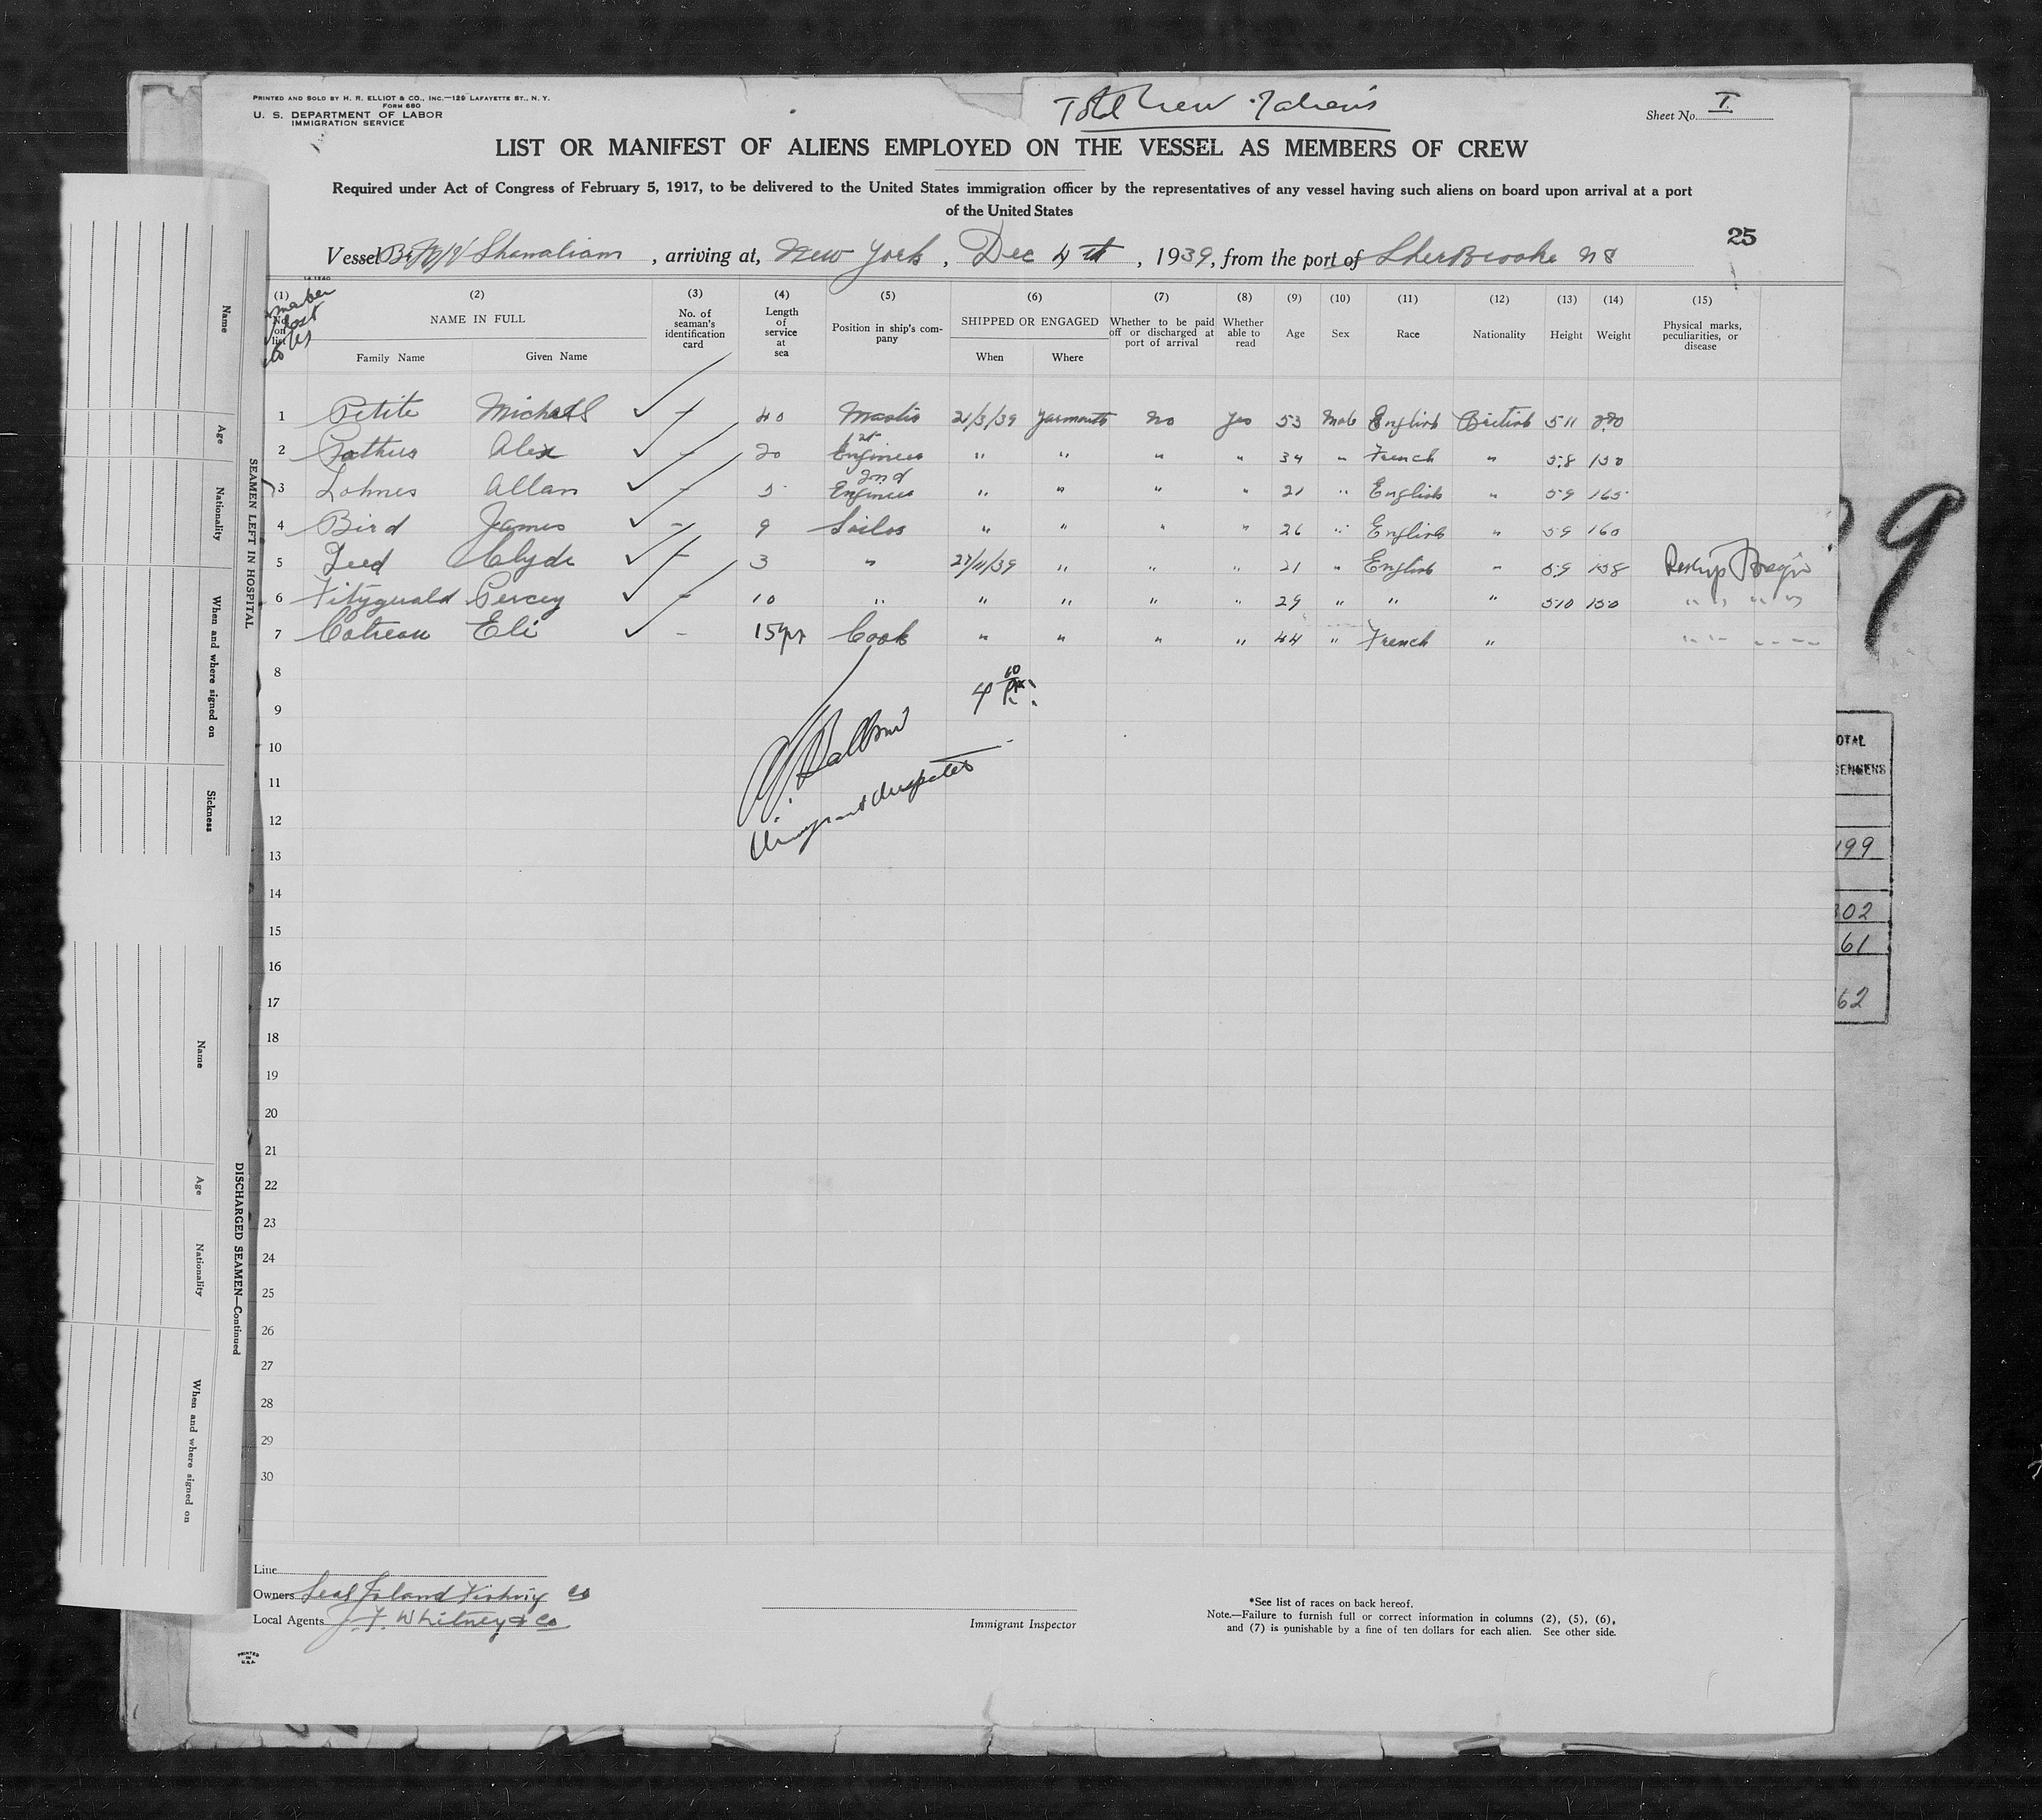 PRINTED AND SOLD BY H. R. ELLIOT & CO., INC.—129 LAFAYETTE ST., N. Y.
FORM 680
U. S. DEPARTMENT OF LABOR
IMMIGRATION SERVICE
Total Crew 7 aliens
Sheet No. I
LIST OR MANIFEST OF ALIENS EMPLOYED ON THE VESSEL AS MEMBERS OF CREW
Required under Act of Congress of February 5, 1917, to be delivered to the United States immigration officer by the representatives of any vessel having such aliens on board upon arrival at a port
of the United States
25
Vessel Br M/V Shanalian, arriving at, New York, Dec 4th, 1939, from the port of Sherbrooke NS
(1) No. on list
(2) NAME IN FULL Family Name Given Name
(3) No. of seaman's identification card
(4) Length of service at sea
(5) Position in ship's company
(6) SHIPPED OR ENGAGED When Where
(7) Whether to be paid off or discharged at port of arrival
(8) Whether able to read
(9) Age
(10) Sex
(11) Race
(12) Nationality
(13) Height
(14) Weight
(15) Physical marks, peculiarities, or disease
1 Petite Michael 40 Master 21/3/39 Yarmouth No Yes 53 Male English British 5 11
2 Alex 20 1st Engineer " " " " 34 " French " 5.8 150
3 Lohnes Allan 5 2nd Engineer " " " " 21 " English " 5 9 165
4 Bird James 9 Sailor " " " " 26 " English " 5 9 160
5 Clyde 3 " 27/11/39 " " " 21 " English " 5.9 158
6 Fitzgerald Percey 10 " " " " " 29 " " " 5 10 150 " " " "
7 Cotreau Eli 15 yrs Cook " " " " 44 " French "
8
9
10
11
12
13
14
15
16
17
18
19
20
21
22
23
24
25
26
27
28
29
30
Immigrant Inspector
Line
Owners Seal Island Fishing Co
Local Agents J. F. Whitney & Co
Immigrant Inspector
*See list of races on back hereof.
Note.—Failure to furnish full or correct information in columns (2), (5), (6),
and (7) is punishable by a fine of ten dollars for each alien. See other side.
PRINTED IN U.S.A.
SEAMEN LEFT IN HOSPITAL
Name
Age
Nationality
When and where signed on
Sickness
DISCHARGED SEAMEN—Continued
Name
Age
Nationality
When and where signed on
9
OTAL
SENGERS
199
302
61
62